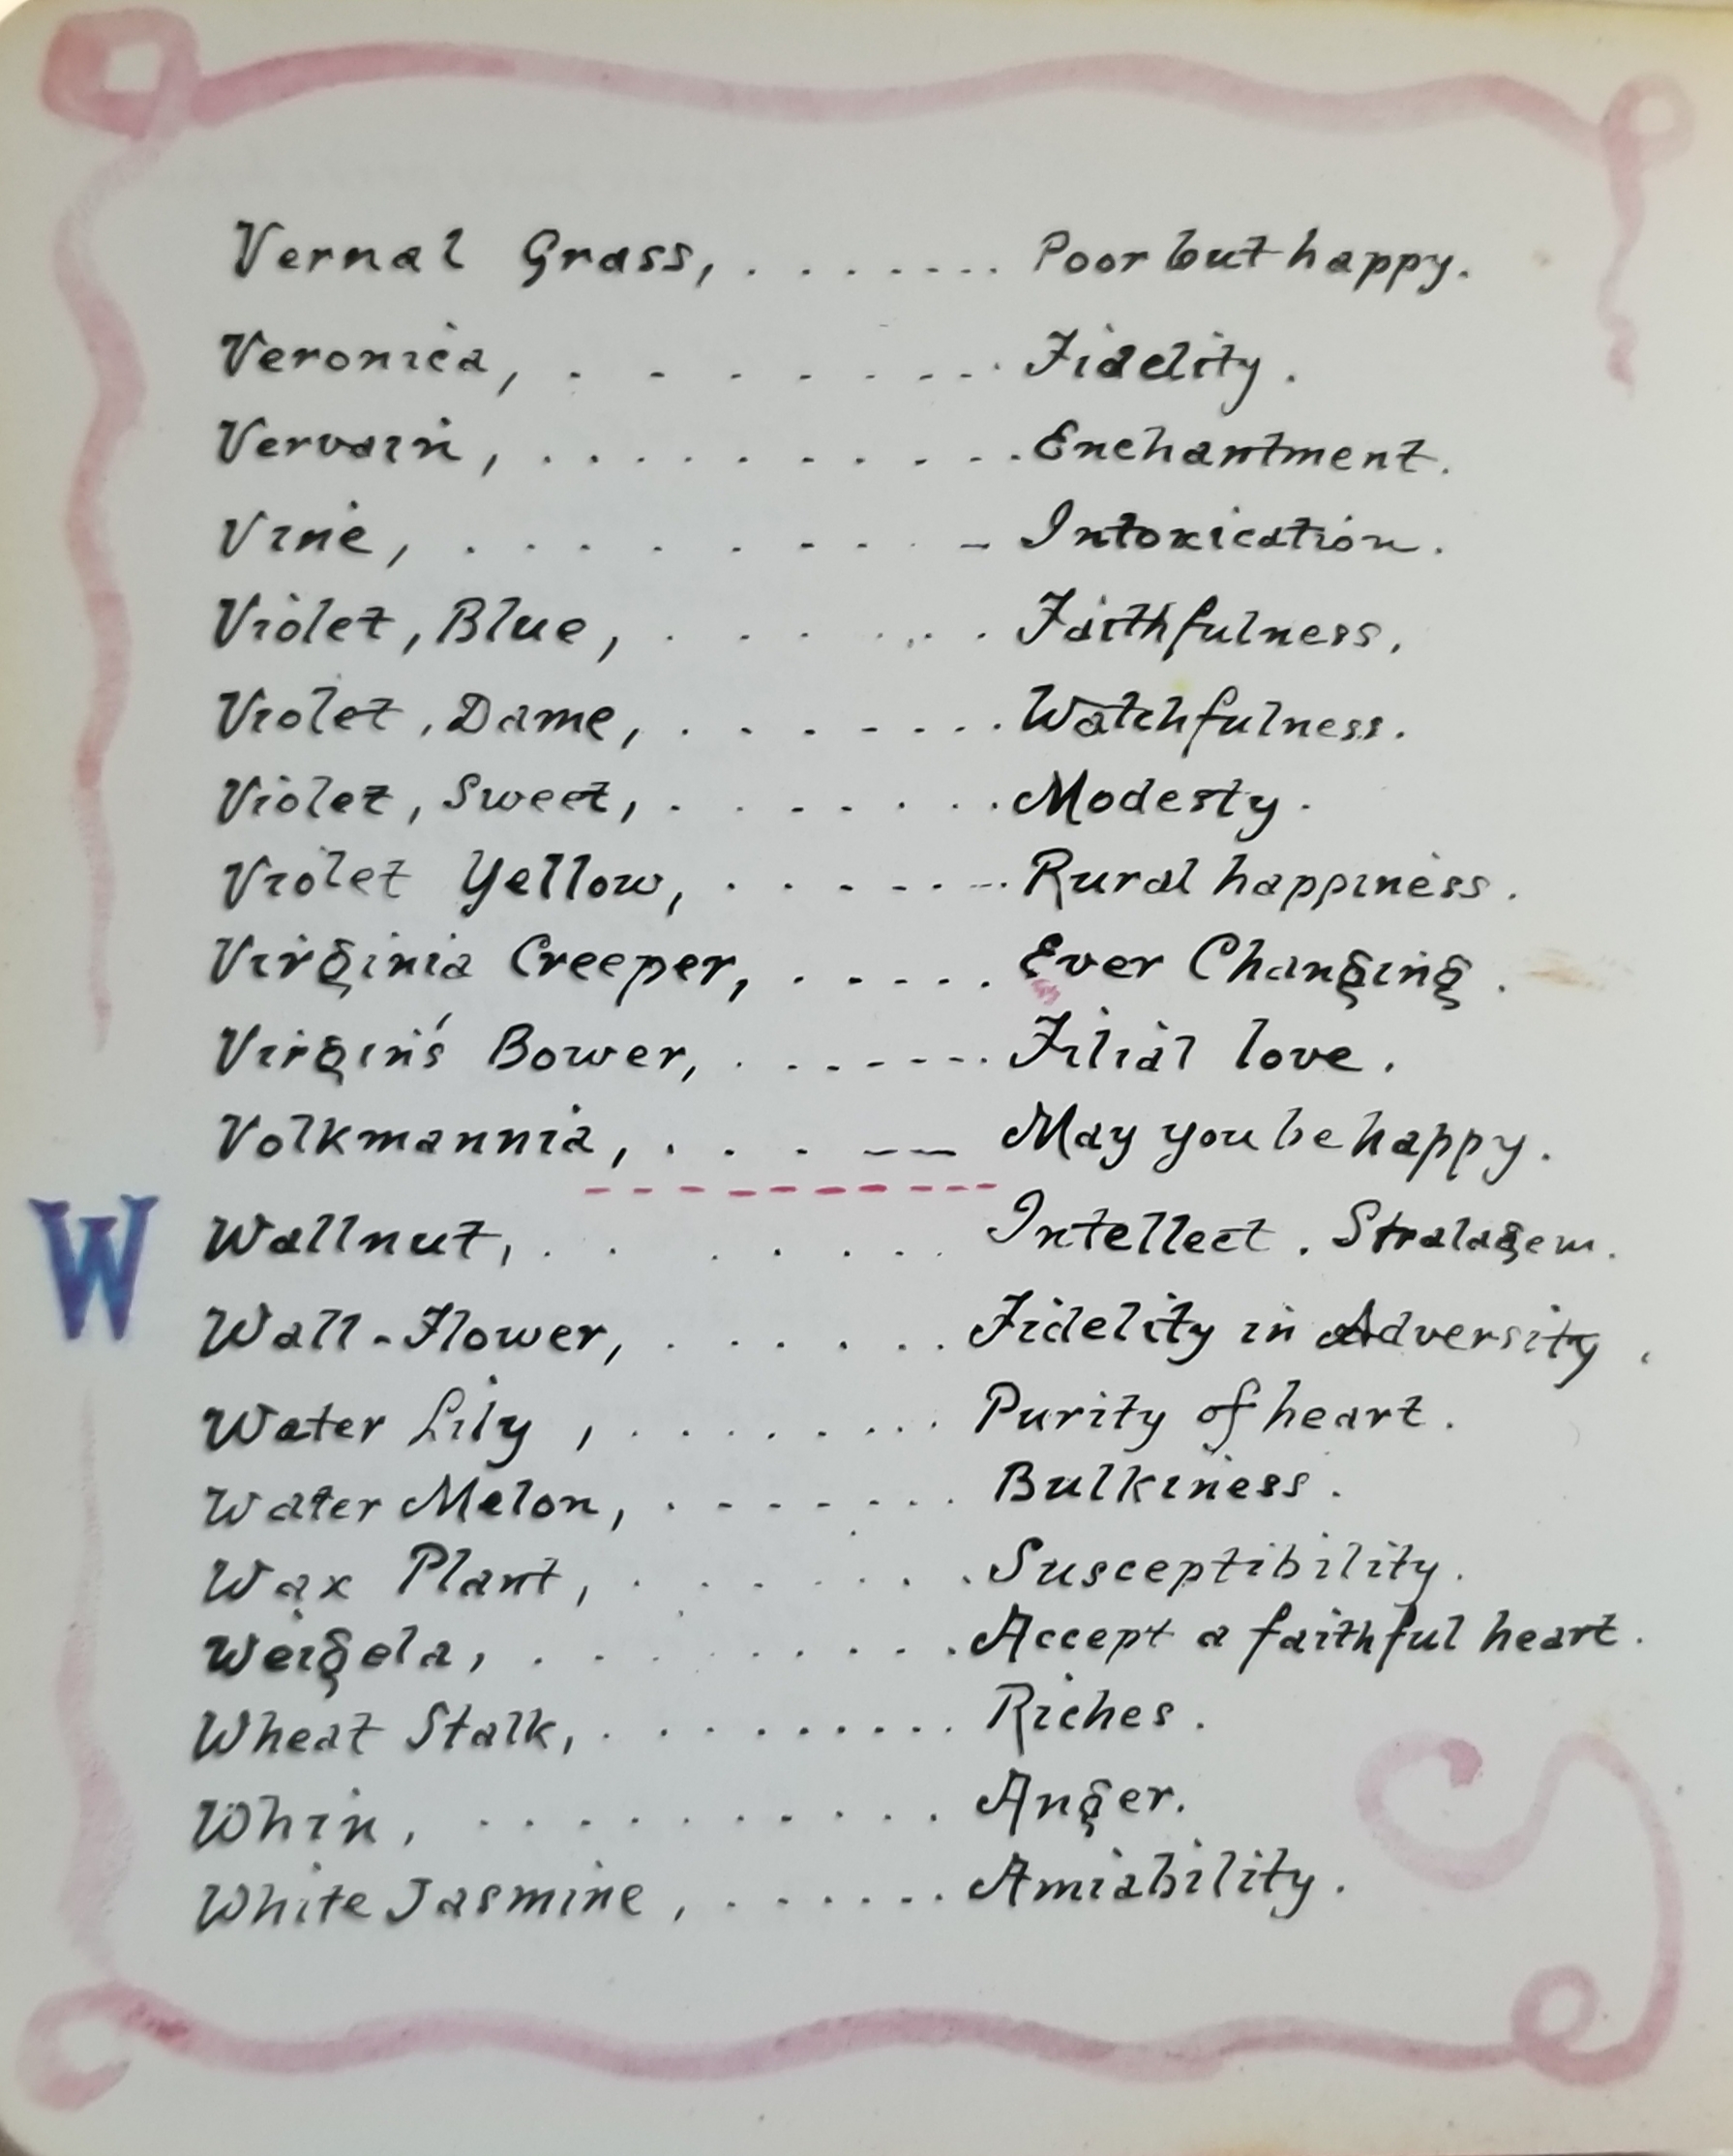 Vernal Grass, . . . . . . . . Poor but happy.
Veronica, . . . . . . . . . Fidelity.
Vervain, . . . . . . . . . . Enchantment.
Vine, . . . . . . . . . Intoxication.
Violet, Blue, . . . . . . . Faithfulness,
Violet, Dame, . . . . . . . . Watchfulness.
Violet, Sweet, . . . . . . . Modesty.
Violet Yellow, . . . . . . . . Rural happiness.
Virginia Creeper, . . . . . . Ever Changing.
Virgin's Bower, . . . . . . . . Filial love.
Volkmannia, . . . — — May you be happy.
W
Wallnut, . . . . . . . . Intellect. Stralagem.
Wall-Flower, . . . . . . . Fidelity in Adversity.
Water Lily, . . . . . . . . Purity of heart.
Water Melon, . . . . . . . . Bulkiness.
Wax Plant, . . . . . . . . Susceptibility.
Weigela, . . . . . . . . . . Accept a faithful heart.
Wheat Stalk, . . . . . . . . . . Riches.
Whin, . . . . . . . . . . Anger.
White Jasmine, . . . . . . . Amiability.